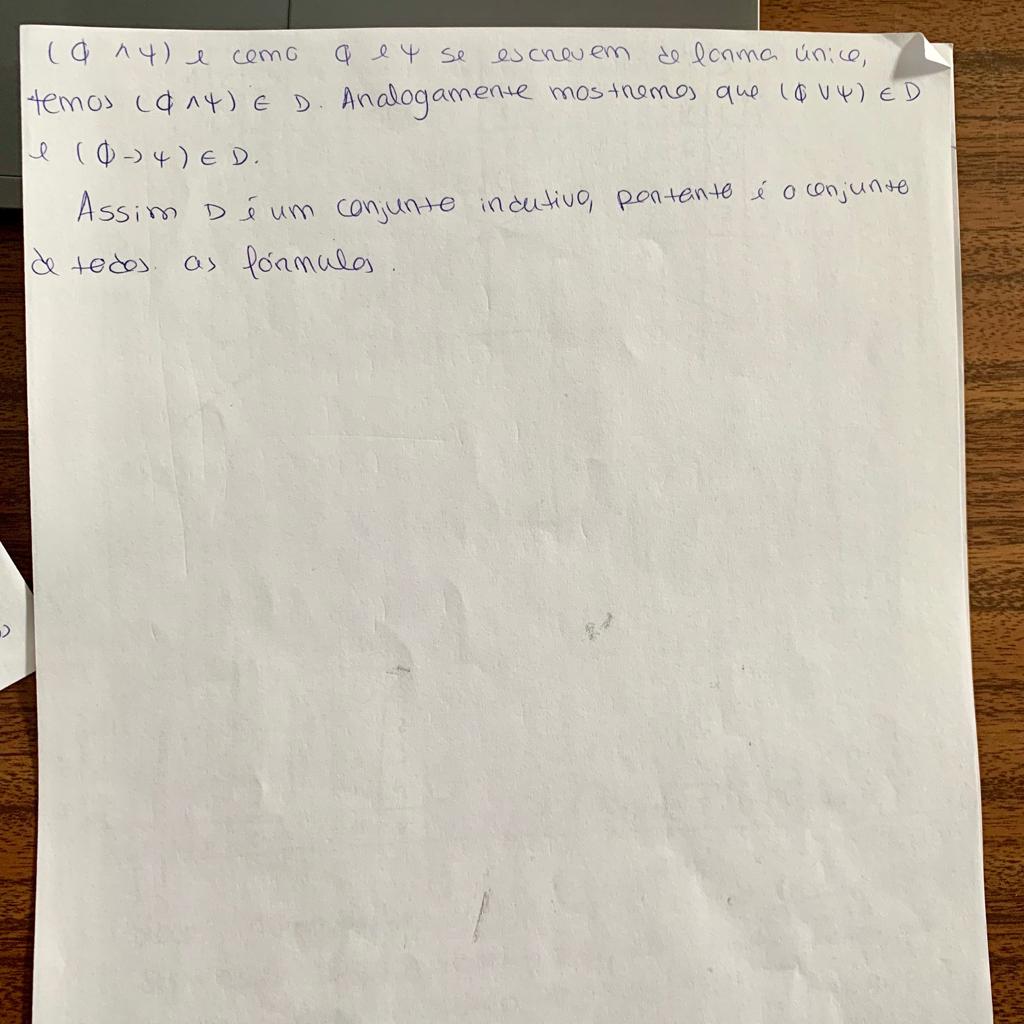 (φ ∧ ψ) e como φ e ψ se escrevem de forma única,
temos (φ ∧ ψ) ∈ D. Analogamente mostremos que (φ ∨ ψ) ∈ D
e (φ → ψ) ∈ D.
Assim D é um conjunto indutivo, portanto é o conjunto
de todas as fórmulas.